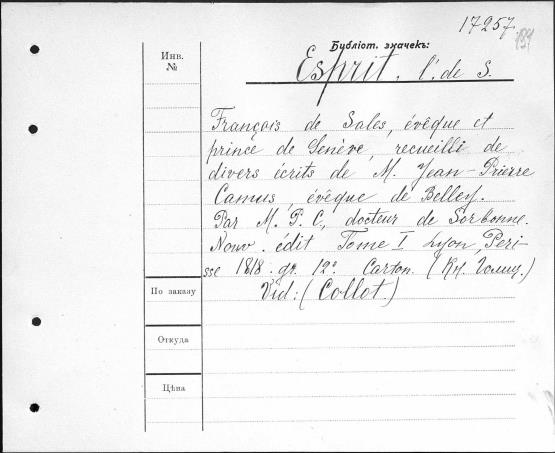 17257
Библіот. значекъ:
Инв.
№
Esprit, l'. de S.
François de Sales, évêque et
prince de Genève, recueilli de
divers écrits de M. Jean-Prierre
Camus, évêque de Belley.
Par M. P. C., docteur de Sorbonne.
Nouv. édit Tome I. Lyon, Peri-
sse 1818. gr. 12º. Carton. (Кн. Голиц.)
Vid: (Collot.)
По заказу
Откуда
Цѣна